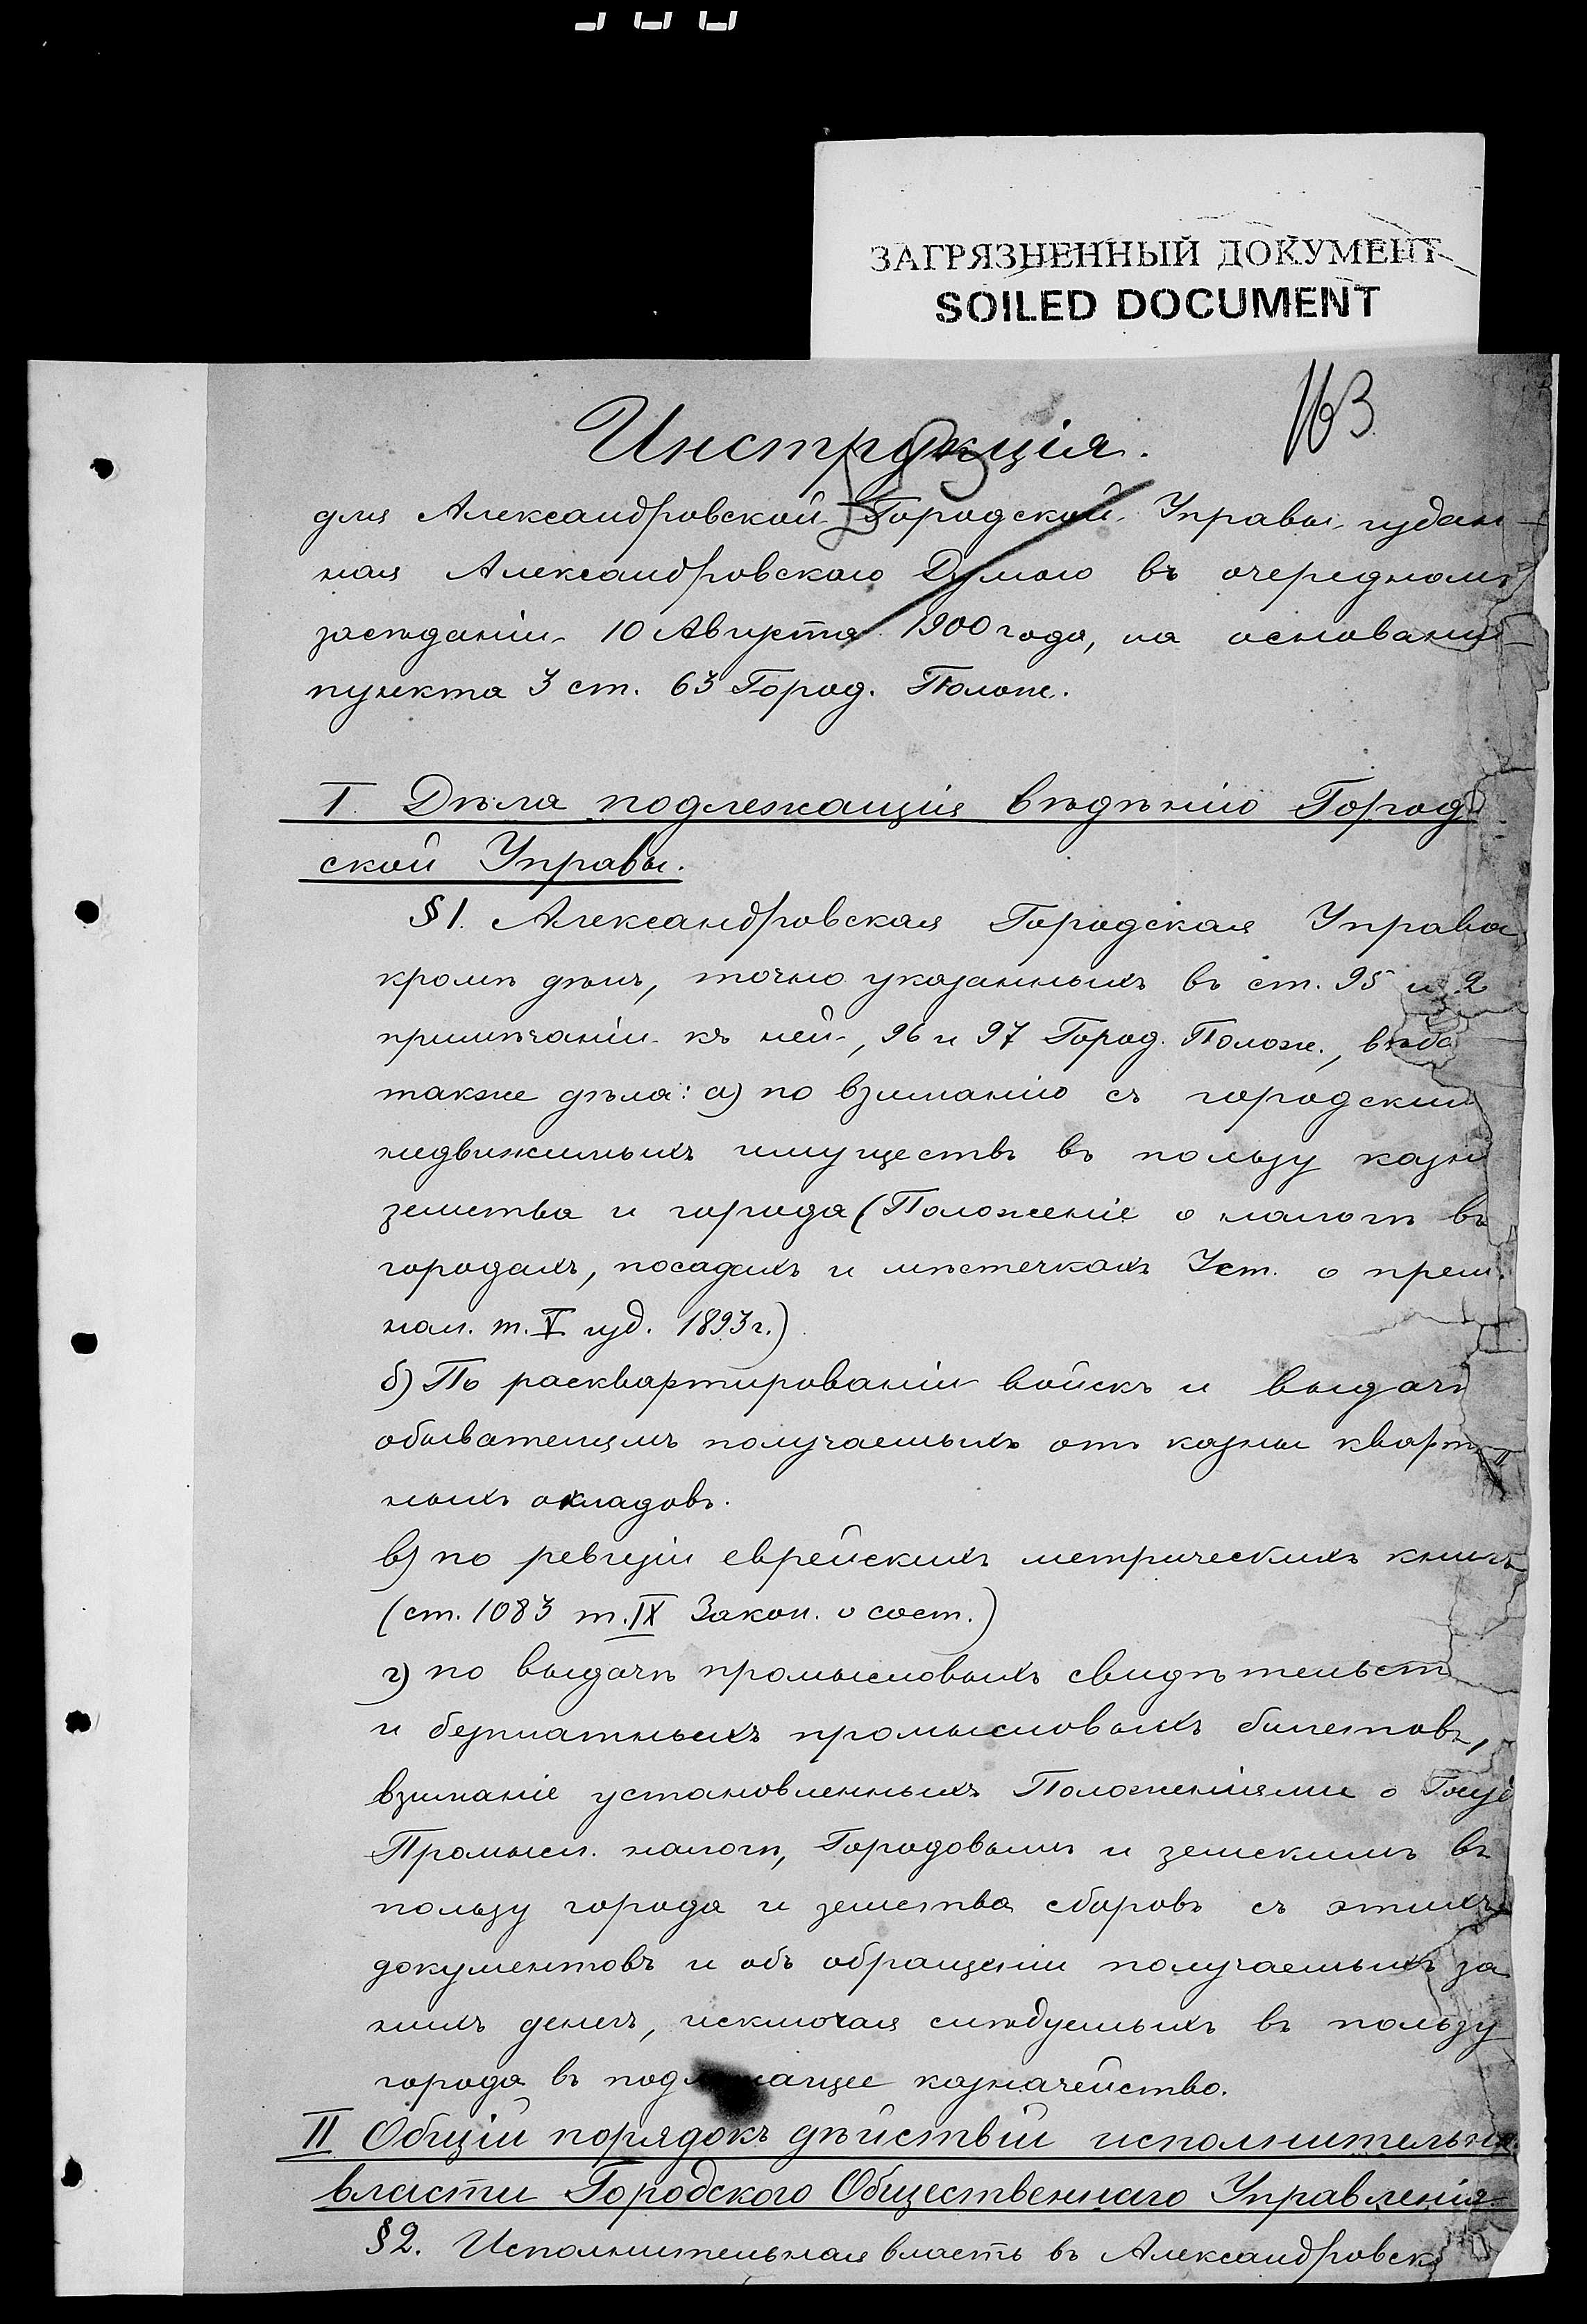 ЗАГРЯЗНЕННЫЙ ДОКУМЕНТ
SOILED DOCUMENT
163
Инструкція.
для Александровской Городской Управы, издан-
ная Александровскою Думою въ очередномъ
засѣданіи 10 Августа 1900 года, на основаніи
пункта 3 ст. 63 Город. Полож.
I. Дѣла подлежащія вѣдѣнію Город
ской Управы.
§ 1. Александровская Городская Управа
кромѣ дѣлъ, точно указанныхъ въ ст. 95 и 2
примѣчаніи къ ней, 96 и 97 Город. Полож., вѣда
также дѣла: а) по взиманію съ городских
недвижимыхъ имуществъ въ пользу казн
земства и города (Положеніе о налогѣ въ
городахъ, посадахъ и мѣстечкахъ Уст. о прям.
нал. т. V изд. 1893 г.)
б) По расквартированіи войскъ и выдачѣ
обывателямъ получаемыхъ отъ казны кварти
ныхъ окладовъ.
в) по ревизіи еврейскихъ метрическихъ книгъ
(ст. 1083 т. IX Закон. о сост.)
г) по выдачѣ промысловыхъ свидѣтельст
и безплатныхъ промысловыхъ билетовъ,
взиманіе установленныхъ Положеніями о Госуд
Промысл. налогѣ, Городовымъ и земскимъ въ
пользу города и земства сборовъ съ этихъ
документовъ и объ обращеніи получаемыхъ за
нихъ денегъ, исключая слѣдуемыхъ въ пользу
города въ подлежащее казначейство.
II Общій порядокъ дѣйствій исполнительной
власти Городского Общественнаго Управленія
§ 2. Исполнительная власть въ Александровск